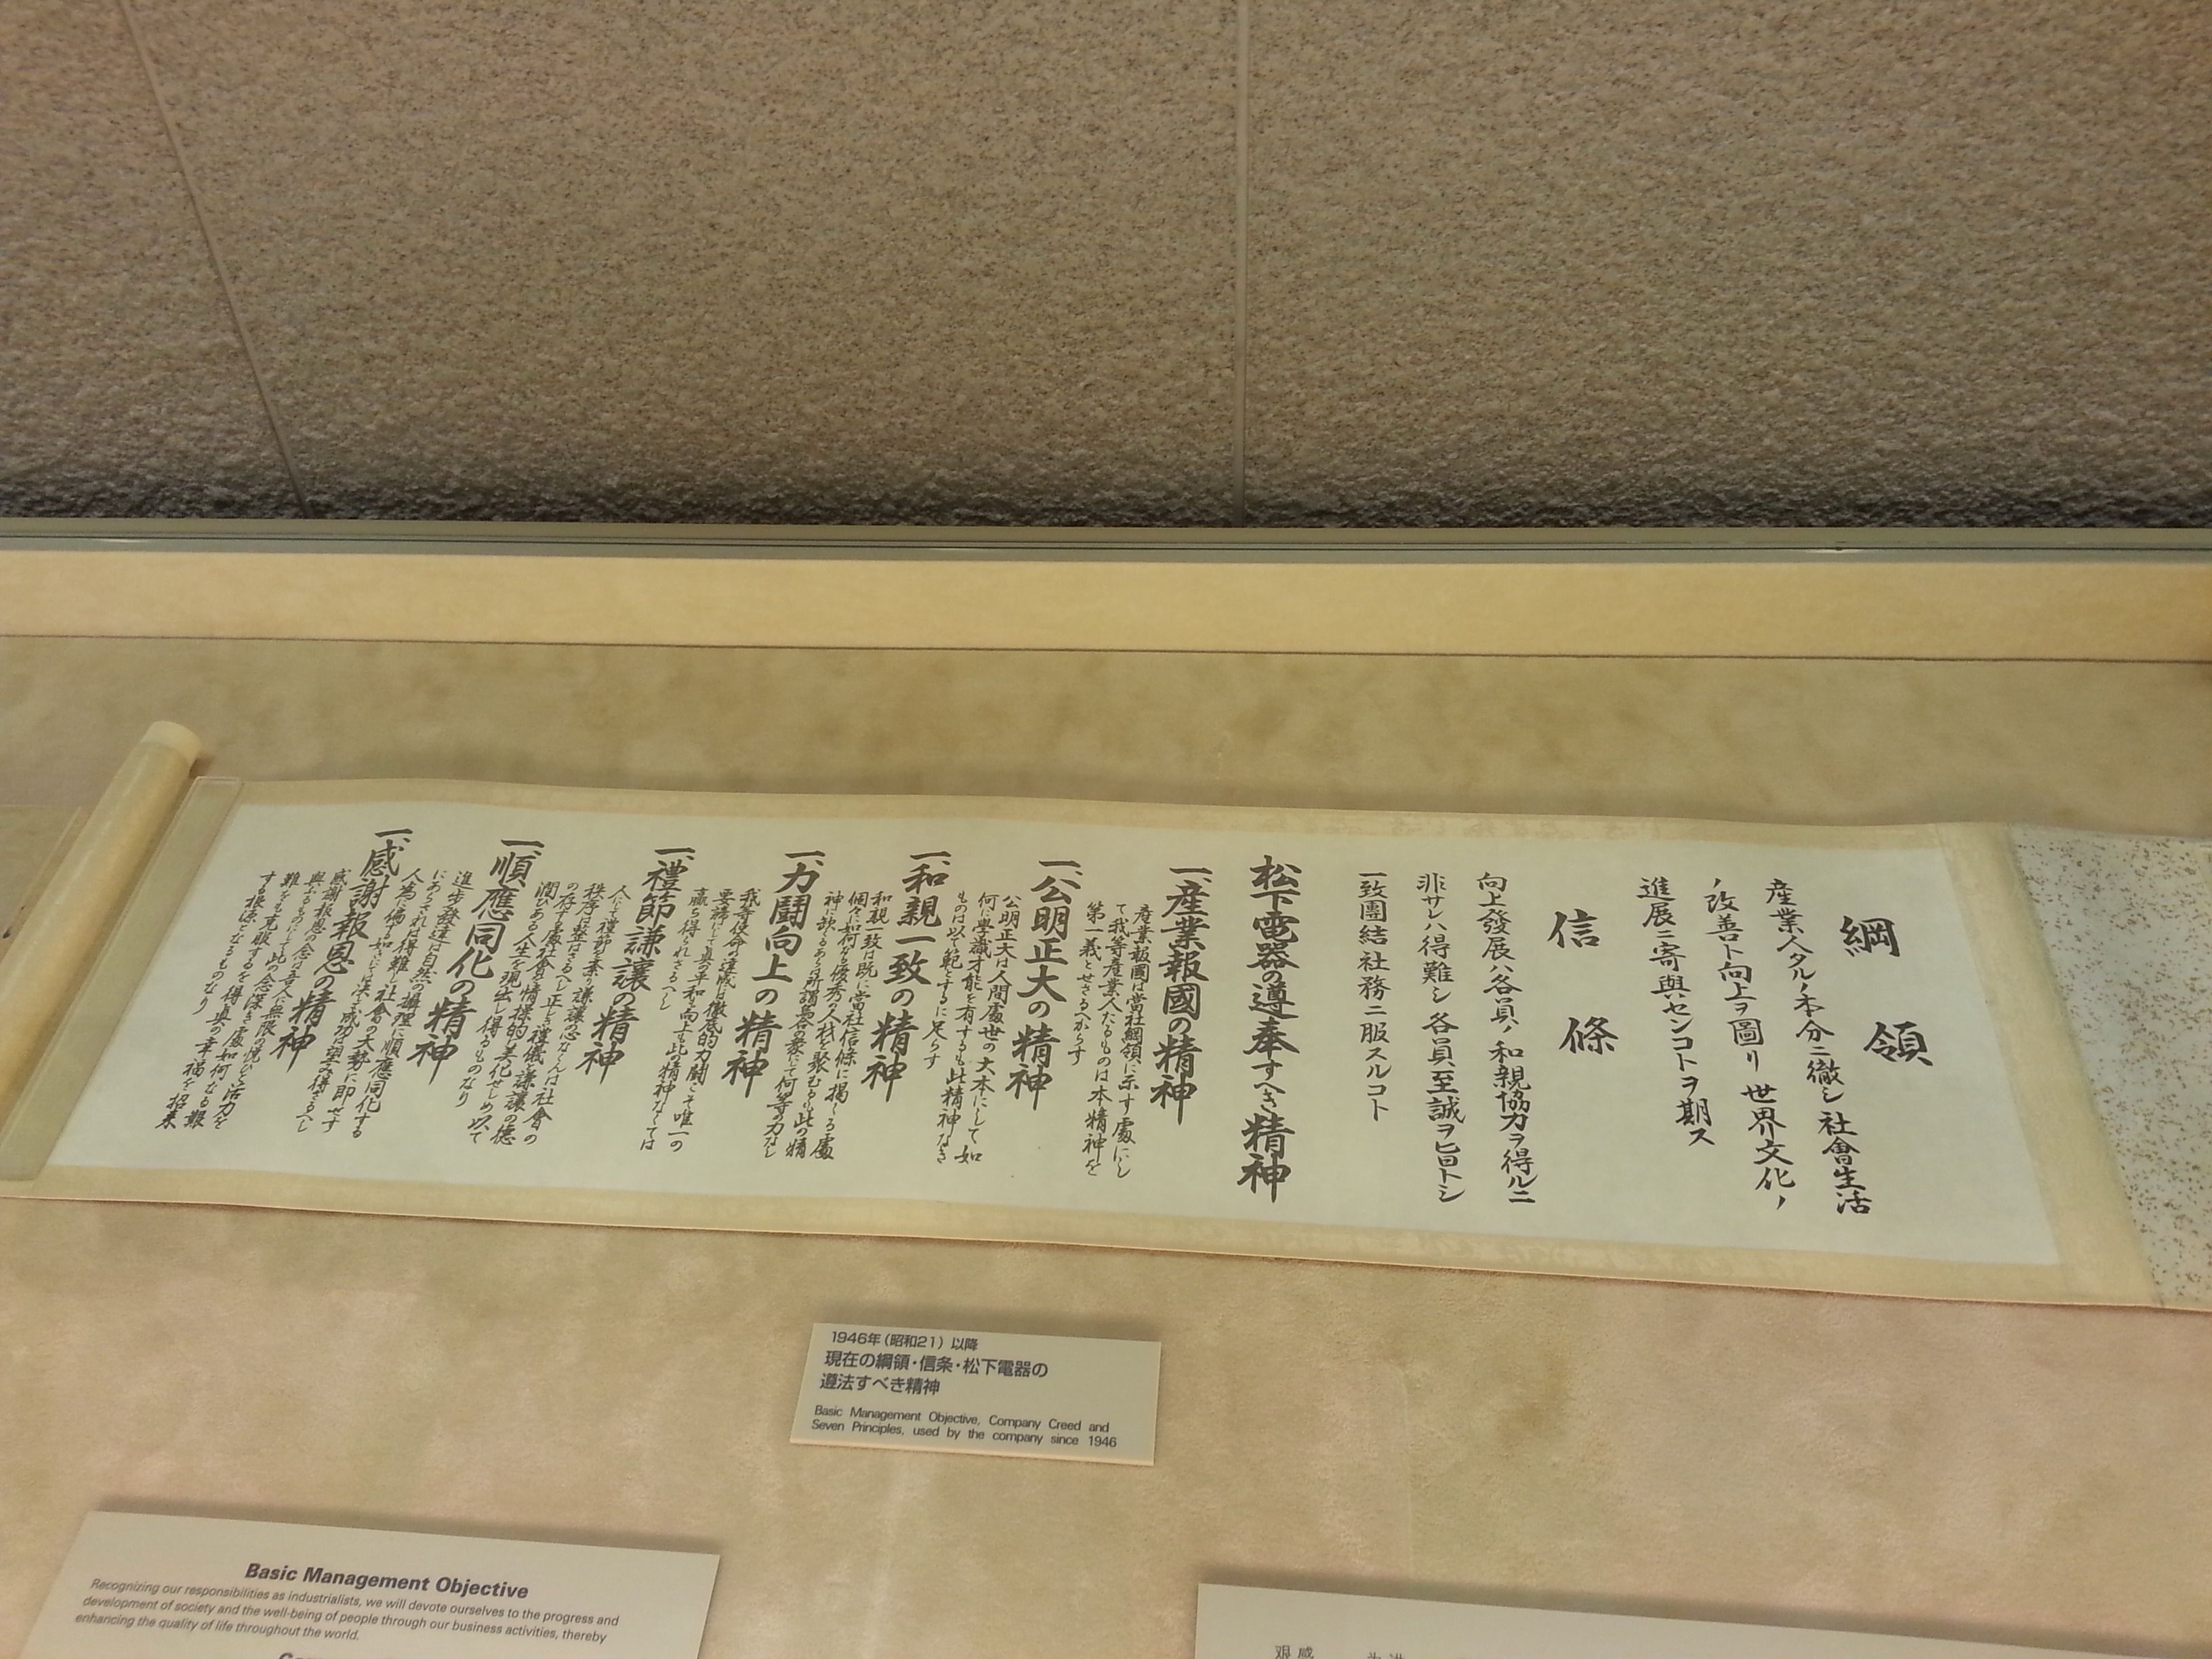 綱領
産業人タルノ本分ニ徹シ社會生活
ノ改善ト向上ヲ圖リ世界文化ノ
進展ニ寄與センコトヲ期ス
信條
向上發展ハ各員ノ和親協力ヲ得ルニ
非サレハ得難シ各員至誠ヲ旨トシ
一致團結社務ニ服スルコト
松下電器の遵奉すへき精神
一、産業報國の精神
産業報國は當社綱領に示す處にし
て我等産業人たるものは本精神を
第一義とせさるへからす
一、公明正大の精神
公明正大は人間處世の大本にして如
何に學識才能を有するも此精神なき
ものは以て範とするに足らす
一、和親一致の精神
和親一致は既に當社信條に掲くる處
個々に如何なる優秀の人材を聚むるも此の精
神に欠くるあらは所謂烏合の衆にして何等の力なし
一、力闘向上の精神
我等使命の達成には徹底的力闘こそ唯一の
要諦にして真の平和も向上も此精神なくては
贏ち得られさるへし
一、禮節謙譲の精神
人にして禮節を紊り謙譲の心なくんは社會の
秩序は整はさるへし正しき禮儀と謙譲の徳
の存する處社會を情操的に美化せしめ以て
潤ひある人生を現出し得るものなり
一、順應同化の精神
進歩發達は自然の攝理に順應同化する
にあらされは得難し社會の大勢に即せす
人為に偏する如きにては決して成功は望み得さるへし
一、感謝報恩の精神
感謝報恩の念は吾人に無限の悦ひと活力を
與ふるものにして此の念深き處如何なる艱
難をも克服するを得真の幸福を招来
する根源となるものなり
1946年(昭和21)以降
現在の綱領・信条・松下電器の
遵法すべき精神
Basic Management Objective, Company Creed and
Seven Principles, used by the company since 1946
Basic Management Objective
Recognizing our responsibilities as industrialists, we will devote ourselves to the progress and
development of society and the well-being of people through our business activities, thereby
enhancing the quality of life throughout the world.